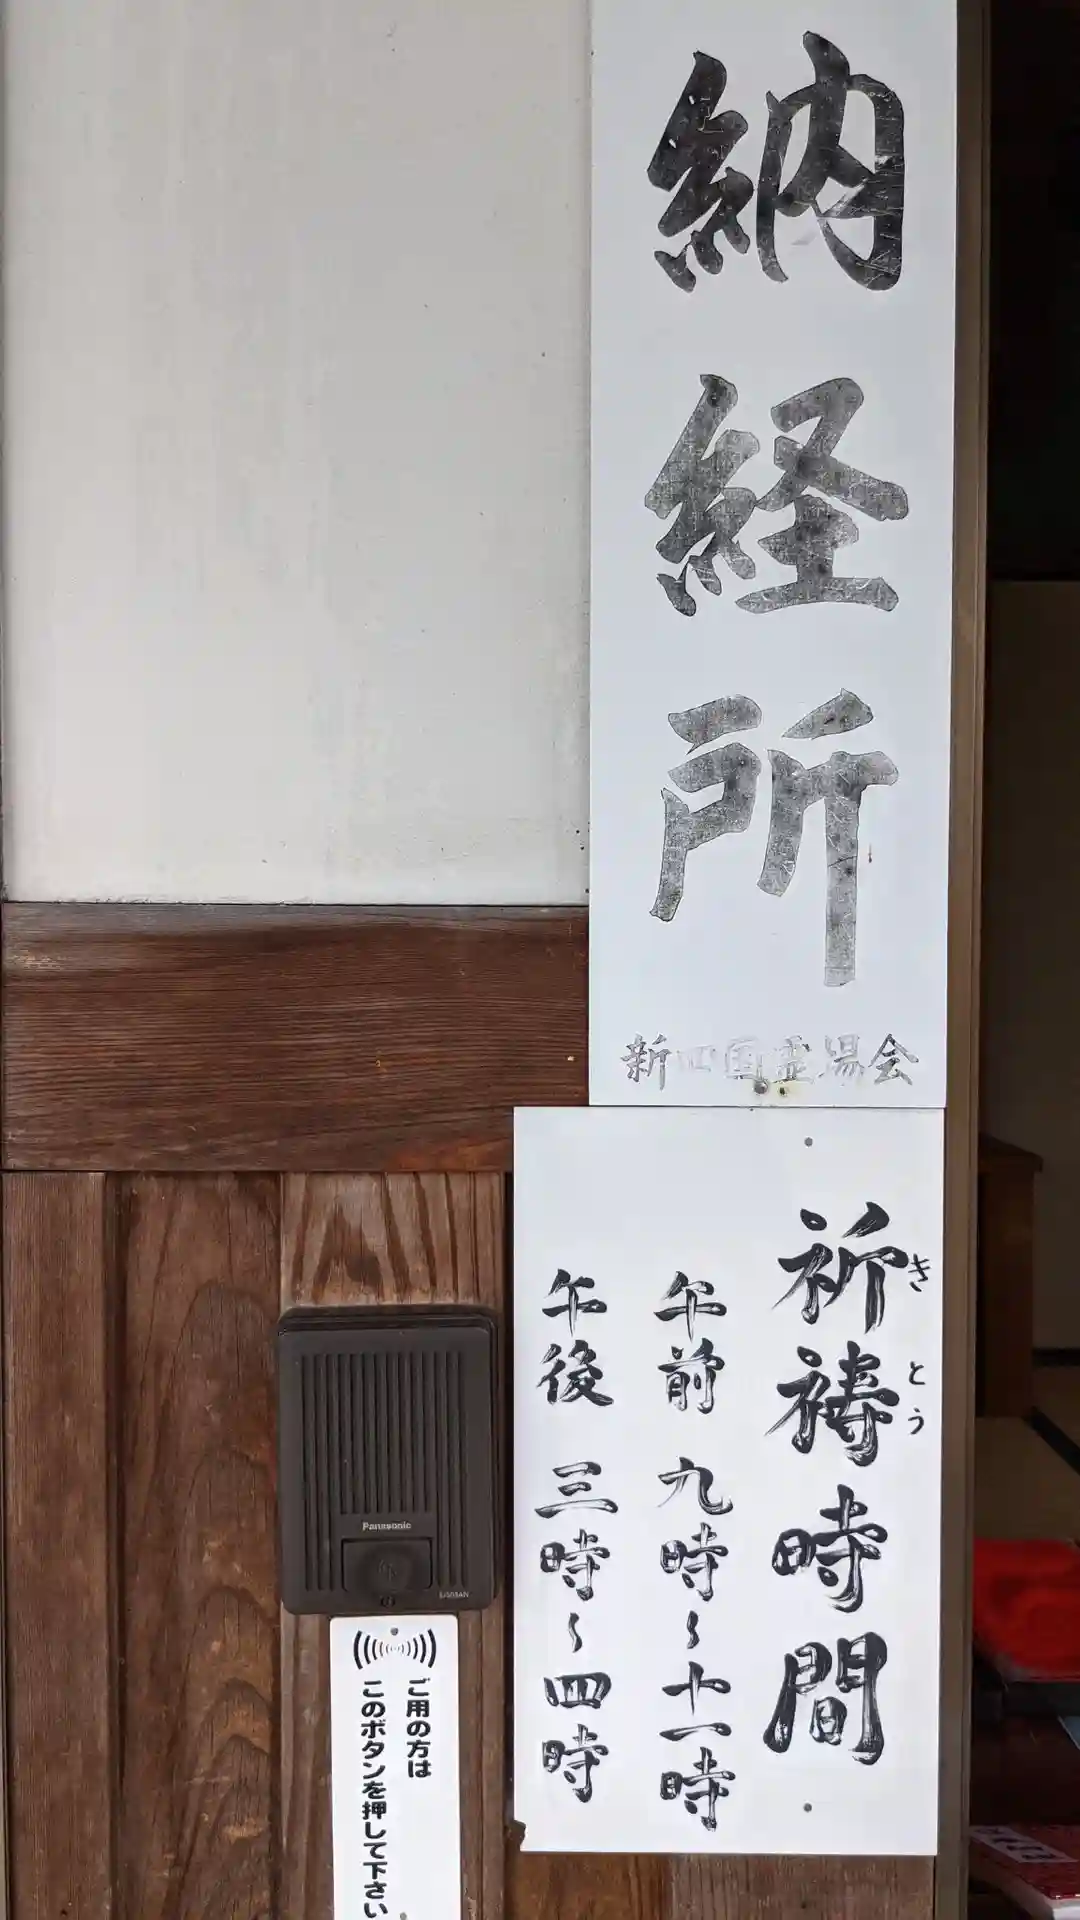 納経所
新四国霊場会
祈祷時間
きとう
午前 九時〜十一時
午後 三時〜四時
Panasonic
ご用の方は
このボタンを押して下さい